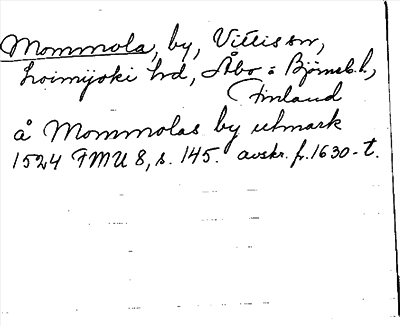 Mommola, by, Vittis sn,
Loimijoki hd, Åbo o Björneb. l.,
Finland
å Mommolas by utmark
1524 FMU 8, s. 145. avskr. fr. 1630-t.